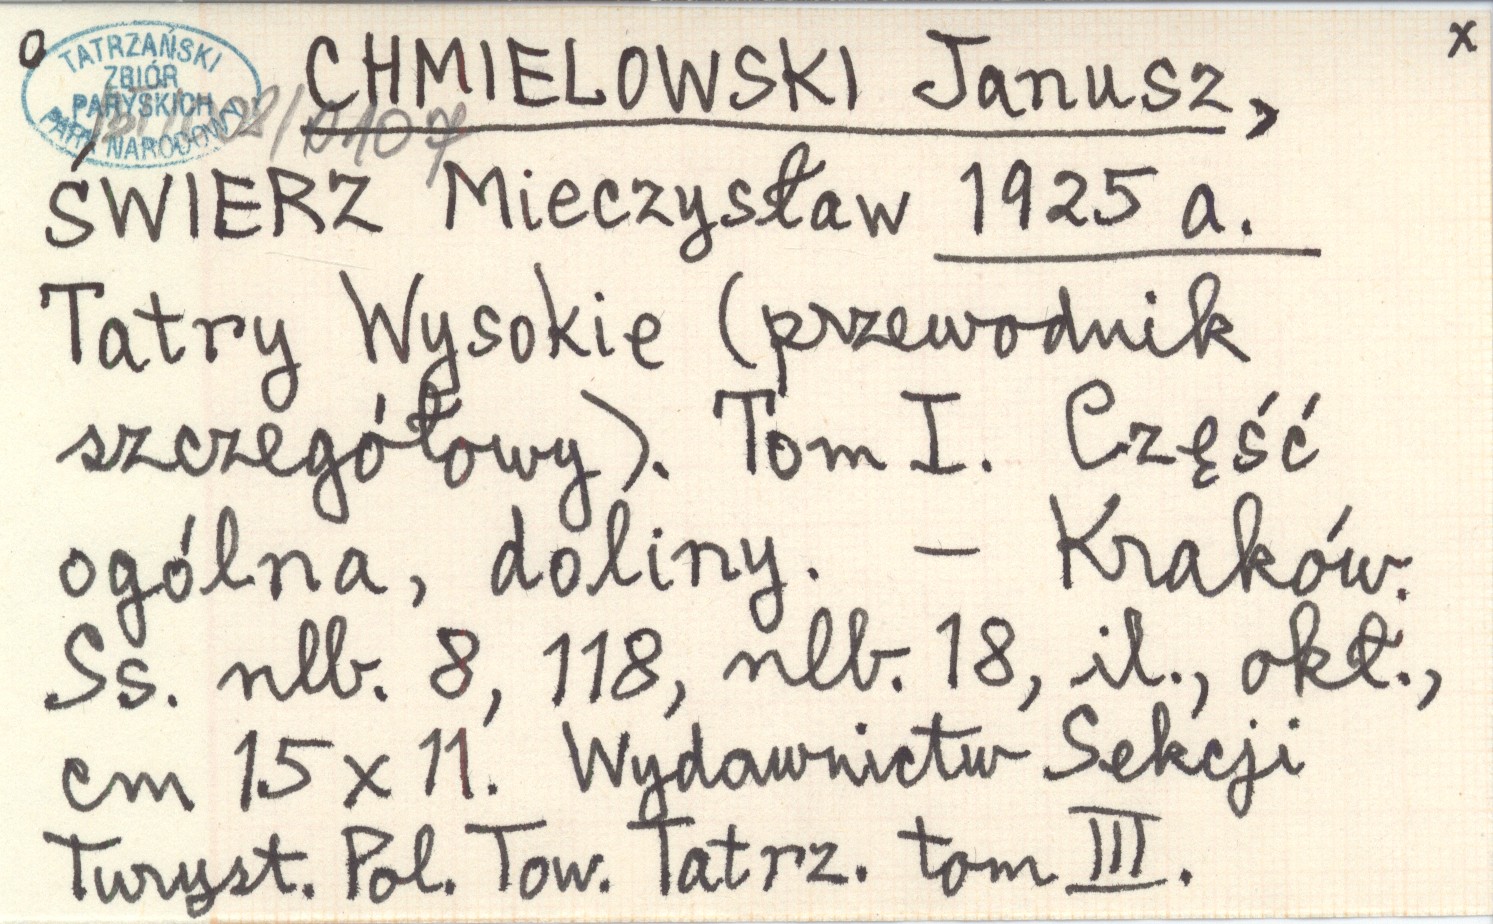 o
x
TATRZAŃSKI
ZBIÓR
PARYSKICH
PARK NARODOWY
CHMIELOWSKI Janusz,
ŚWIERZ Mieczysław 1925 a.
Tatry Wysokie (przewodnik
szczegółowy). Tom I. Część
ogólna, doliny. — Kraków.
Ss. nlb. 8, 118, nlb. 18, il., okł.,
cm 15 x 11. Wydawnictw Sekcji
Turyst. Pol. Tow. Tatrz. tom III.